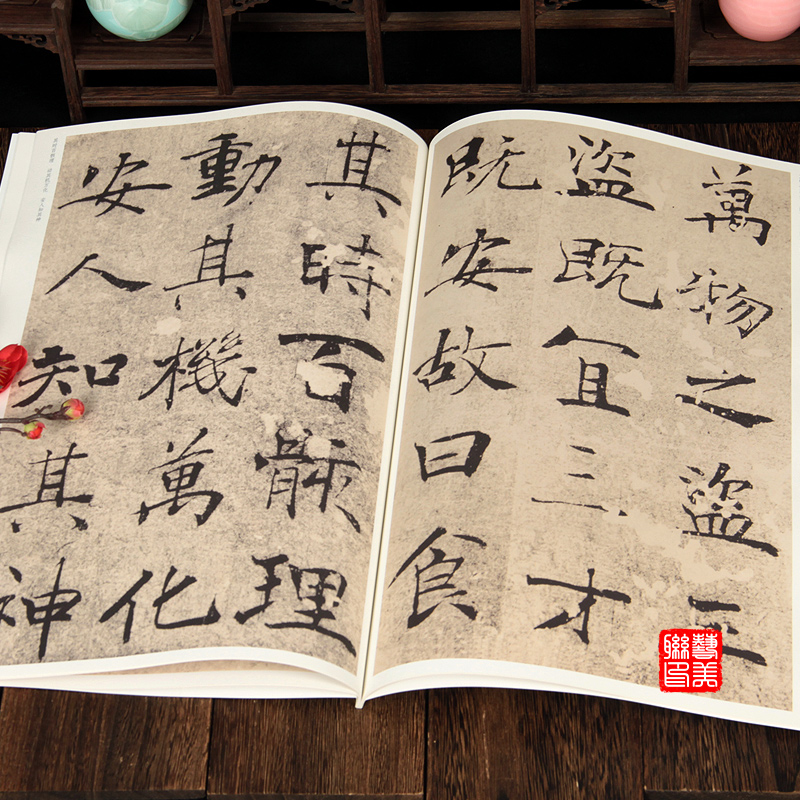 萬物之盜三
盜既宜三才
既安故曰食
其時百骸理
動其機萬化
安人知其神
藝美聯